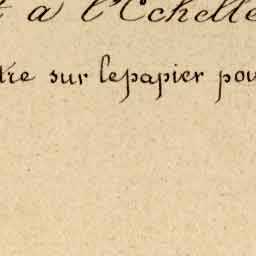 t a l'Echelle
tre sur le papier pou